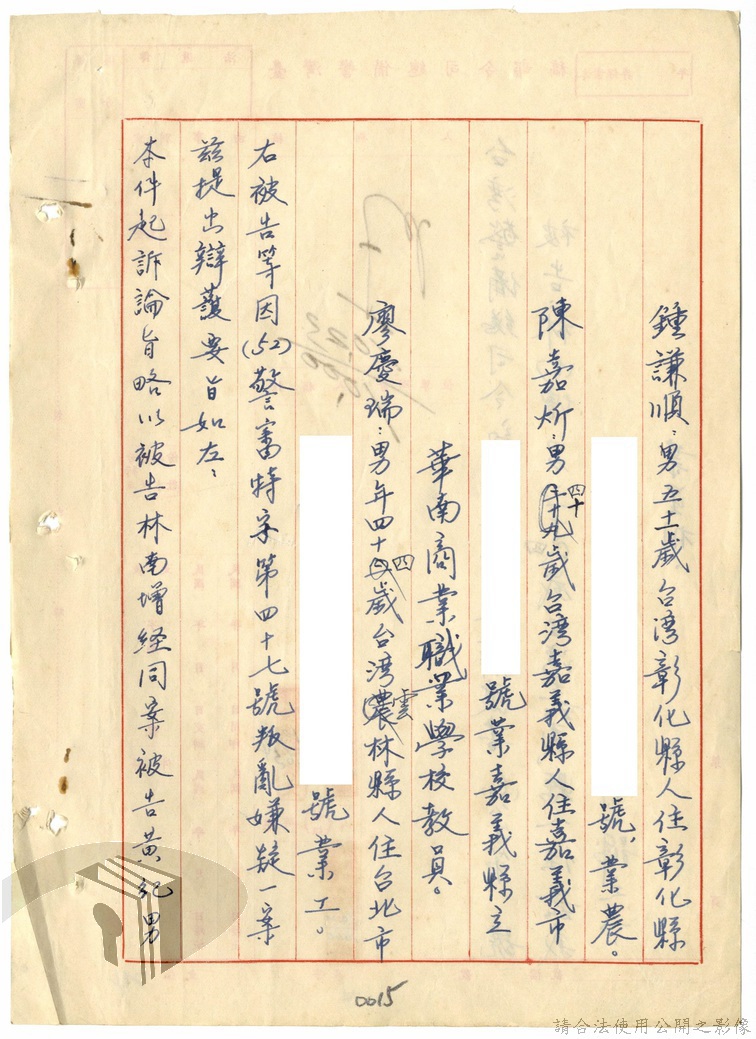 鍾謙順：男五十一歲台湾彰化縣人住彰化縣
號，業農。
陳嘉炘：男四十歲台湾嘉義縣人住嘉義市
號業嘉義縣立
華南商業職業學校教員。
廖慶瑞：男年四十四歲台湾雲林縣人住台北市
號業工。
右被告等因(52)警審特字第四十七號叛亂嫌疑一案
茲提出辯護要旨如左：
本件起訴論旨略以被告林南增経同案被告黃紀男
0015
請合法使用公開之影像